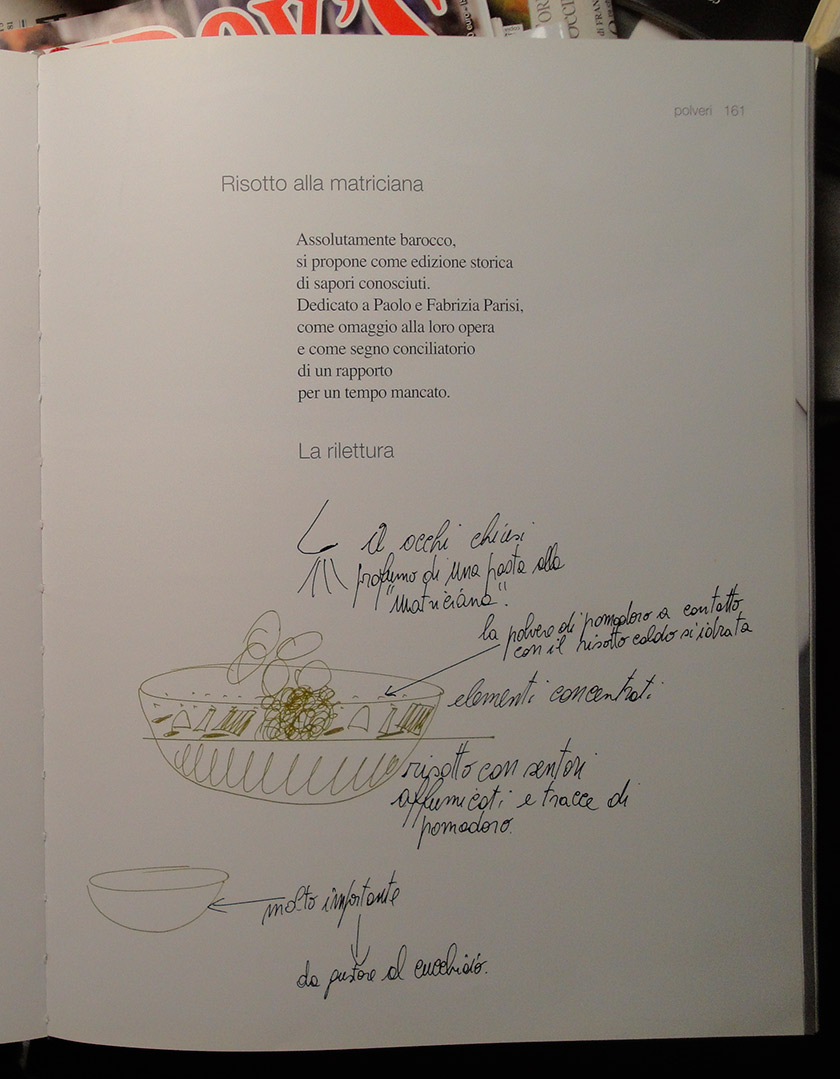 polveri 161
Risotto alla matriciana
Assolutamente barocco,
si propone come edizione storica
di sapori conosciuti.
Dedicato a Paolo e Fabrizia Parisi,
come omaggio alla loro opera
e come segno conciliatorio
di un rapporto
per un tempo mancato.
La rilettura
A occhi chiusi
profumo di una pasta alla
"matriciana".
la polvere di pomodoro a contatto
con il risotto caldo si idrata
elementi concentrati
risotto con sentori
affumicati e tracce di
pomodoro.
molto importante
da gustare al cucchiaio.